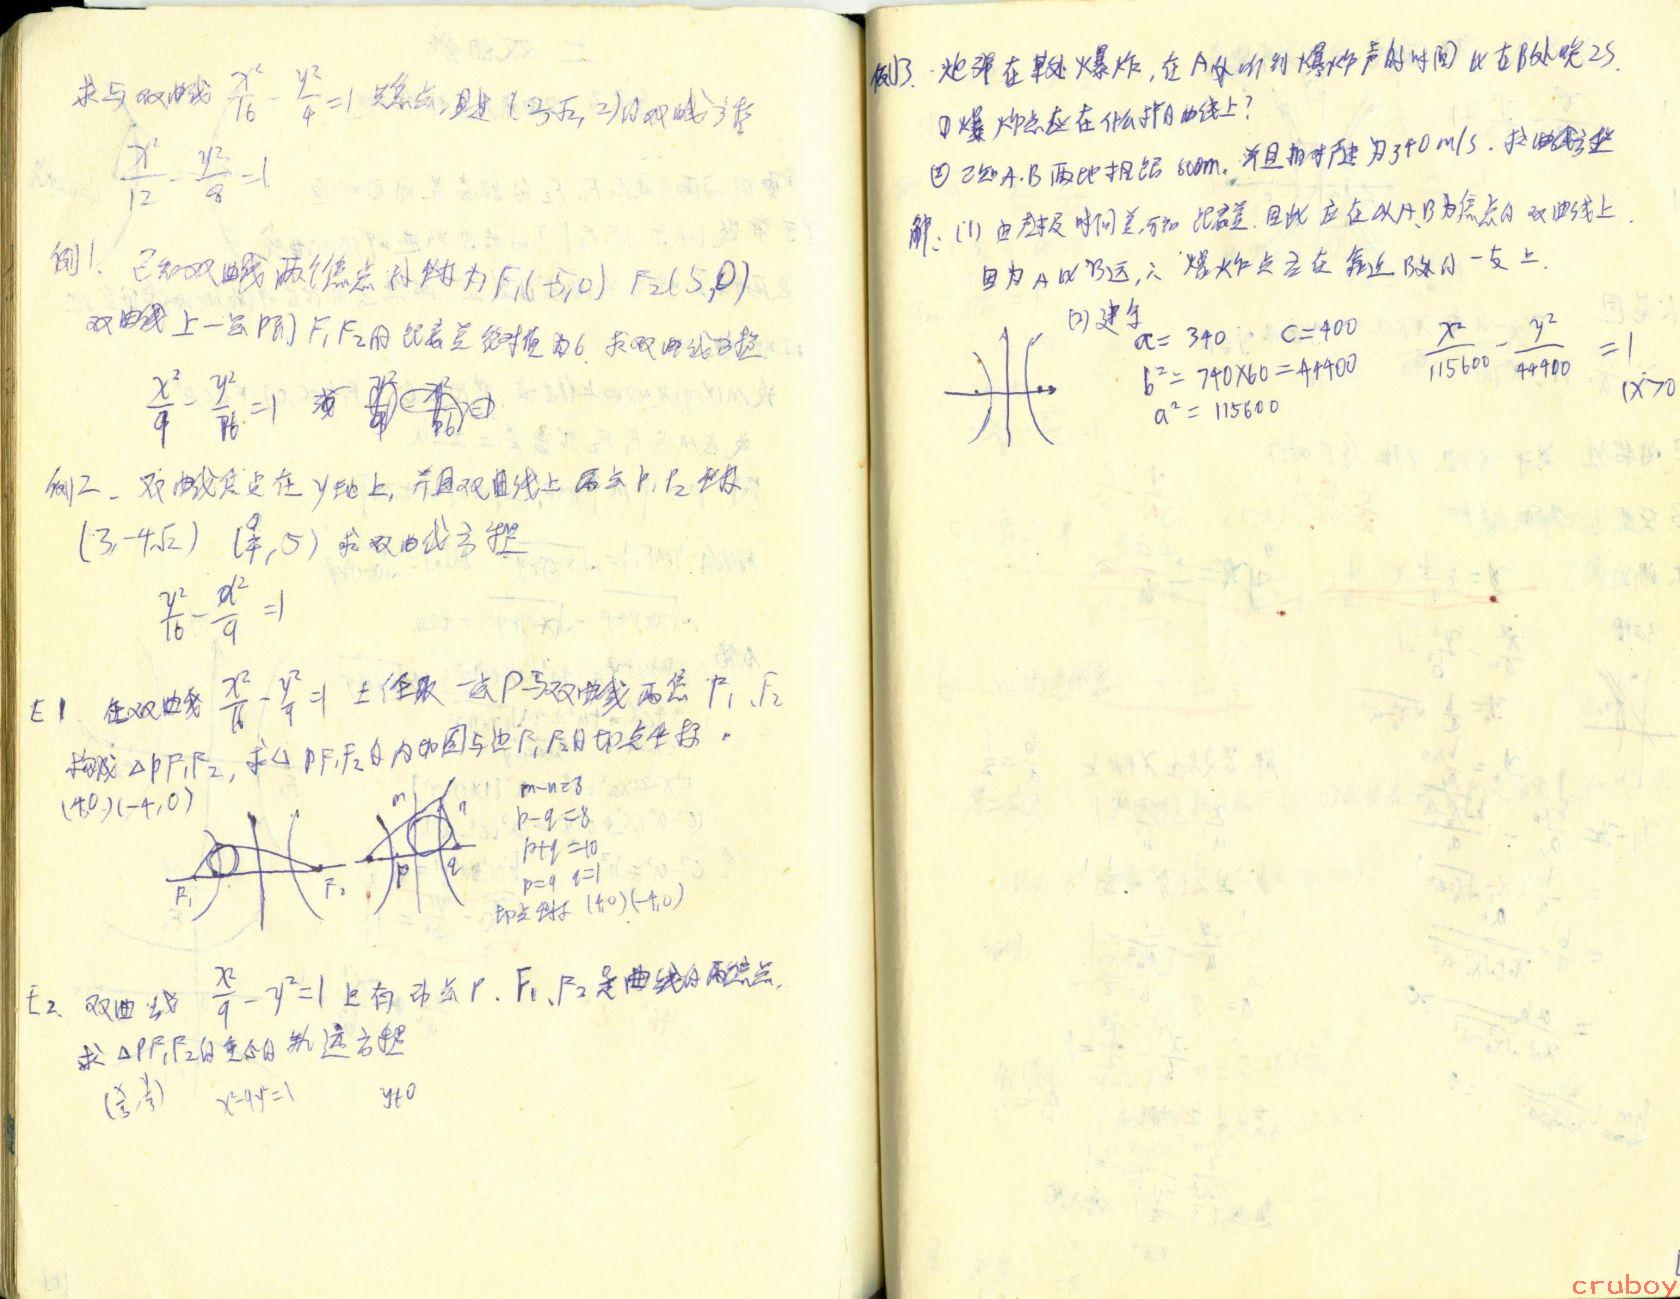 求与双曲线 x²/16 - y²/4 = 1 共焦点,且过(3√2, 2)的双曲线方程
x²/12 - y²/8 = 1
例1. 已知双曲线两个焦点坐标为 F₁(-5,0) F₂(5,0)
双曲线上一点P到 F₁F₂的距离差绝对值为6. 求双曲线方程
x²/9 - y²/16 = 1 或
例二. 双曲线焦点在y轴上, 并且双曲线上两点P₁P₂坐标
(3,-4√2) (9/4, 5) 求双曲线方程
y²/16 - x²/9 = 1
E1 在双曲线 x²/16 - y²/9 = 1 上任取一点P与双曲线两焦F₁、F₂
构成△PF₁F₂, 求△PF₁F₂的内切圆与边F₁F₂的切点坐标.
(4,0)(-4,0)
F₁ F₂
m n
p q
m-n=8
p-q=8
p+q=10
p=9 q=1
切点坐标 (4,0)(-4,0)
E2. 双曲线 x²/9 - y² = 1 上有动点P. F₁、F₂是曲线的两焦点.
求△PF₁F₂的重心的轨迹方程
(x/3, y/3) x²-9y²=1 y≠0
例3. 炮弹在某处爆炸, 在A处听到爆炸声的时间比在B处晚2S.
① 爆炸点应在什么样的曲线上?
② 已知A.B两地相距800m. 并且声速为340m/s. 求曲线方程
解: (1) 由声速及时间差,可知距离差. 因此应在以A,B为焦点的双曲线上.
因为A比B远, ∴爆炸点应在靠近B处的一支上.
(2) 建系
a = 340 c=400
b² = 740×60 = 44400
a² = 115600
x²/115600 - y²/44400 = 1
(x>0
cruboy